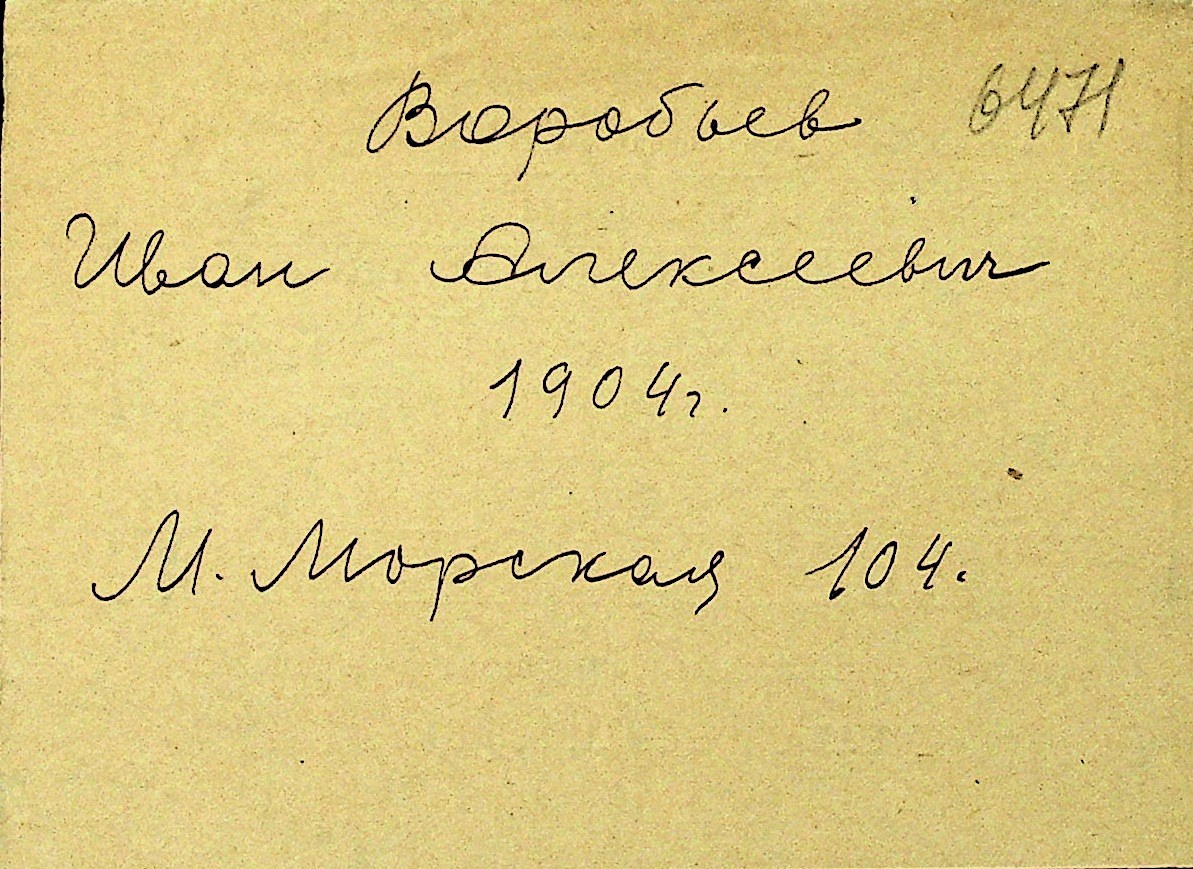 Воробьев 6471
Иван Алексеевич
1904г.
М. Морская 104.